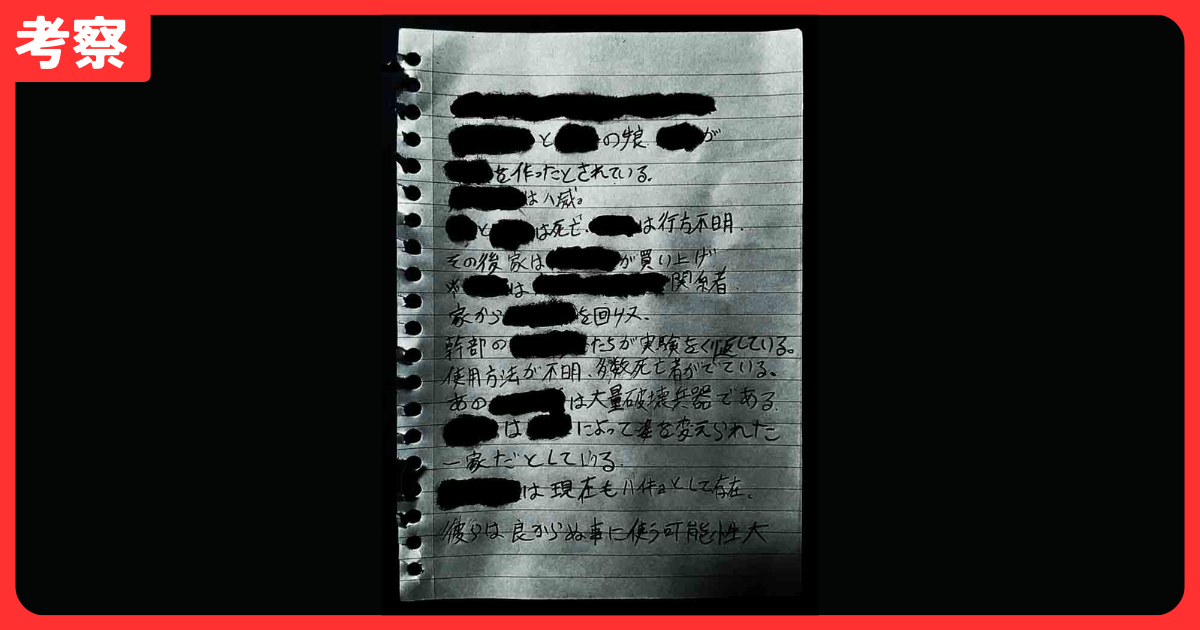 考察
と の娘 が
を作ったとされている。
は八咸。
と は死亡、 は行方不明、
その後家は が買い上げ
※ は 関係者、
家から を回収、
幹部の たちが実験をくり返している。
使用方法が不明、多数死亡者がでている。
あの は大量破壊兵器である。
は によって姿を変えられた
一家だとしている。
は現在も として存在。
彼らは良からぬ事に使う可能性大